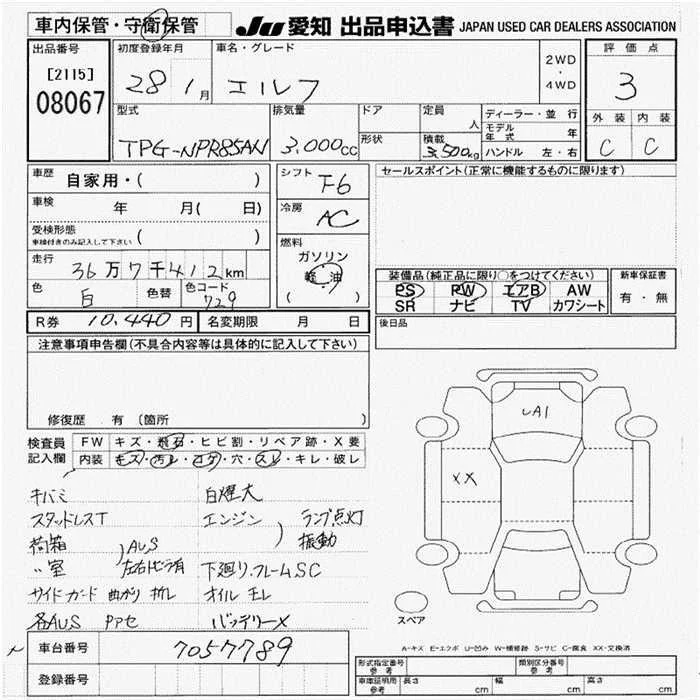 車内保管・守衛保管
JU 愛知 出品申込書 JAPAN USED CAR DEALERS ASSOCIATION
出品番号
[2115]
08067
初度登録年月
28 1月
車名・グレード
エルフ
2WD
・
4WD
評価点
3
外装 内装
C C
型式
TPG-NPR85AN
排気量
3,000cc
ドア
形状
定員
人
積載
3,500kg
ディーラー・並行
モデル年式 年
ハンドル 左・右
車歴 自家用・( )
車検 年 月( 日)
受検形態
車検付きのみ記入して下さい ( )
走行 36万7千412km
色 白 色替 色コード 729
シフト F6
冷房 AC
燃料
ガソリン
軽・油
( )
セールスポイント(正常に機能するものに限ります)
装備品(純正品に限り○をつけてください)
PS PW エアB AW
SR ナビ TV カワシート
新車保証書
有・無
R券 10,440円 名変期限 月 日
後日品
注意事項申告欄(不具合内容等は具体的に記入して下さい)
修復歴 有(箇所 )
検査員記入欄
FW キズ・飛石・ヒビ割・リペア跡・X要
内装 キズ・汚レ・コゲ・穴・スレ・キレ・破レ
キバミ 白煙大
スタッドレスT エンジン ランプ点灯
荷箱 振動
〃室 AUS
下廻り.フレームSC
サイドガード 曲がり 折レ オイルモレ
各AUS アセ バッテリーX
UA1
XX
スペア
A-キズ E-エクボ U-凹み W-補修跡 S-サビ C-腐食 XX-交換済
車台番号 7057789
登録番号
形式指定番号 参考 類別区分番号 参考
車庫証明用 参考 長さ cm 幅 cm 高さ cm